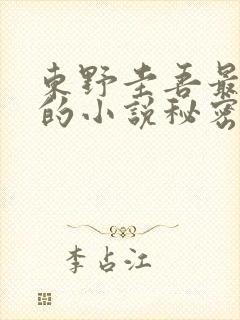 東野圭吾最
的小說秘密
李占江